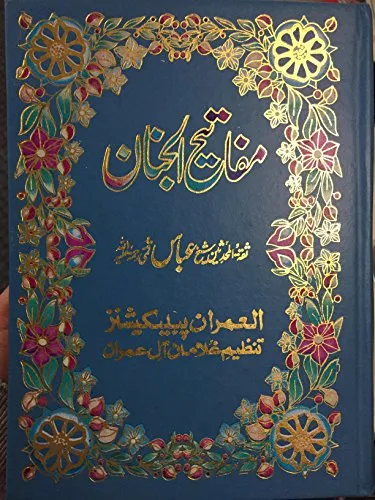 مفاتیح الجنان
ثقۃ المحدثین شیخ عباس قمی
العمران پبلیکیشنز
تنظیم غلامان آل عمران